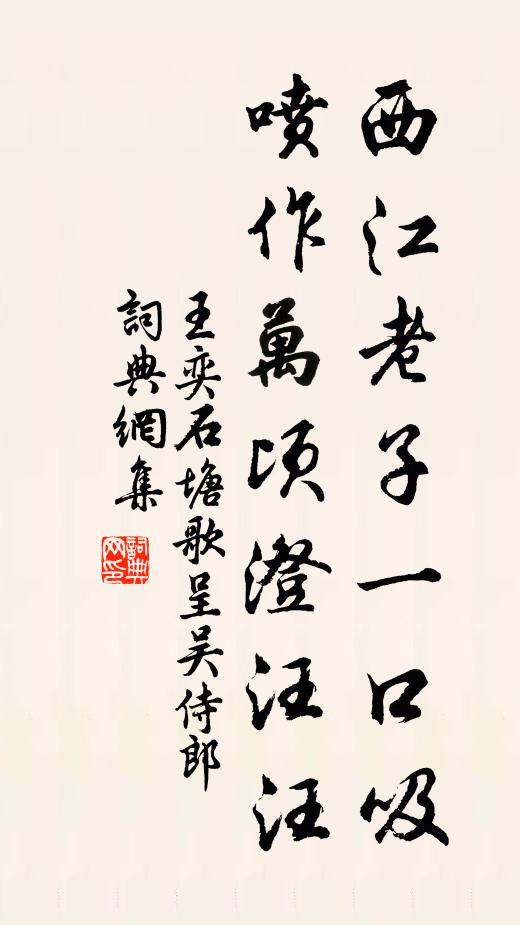 西江老子一口吸
噴作萬頃澄汪汪
王奕石塘歌呈吳侍郎
詞典網集
詞典网印